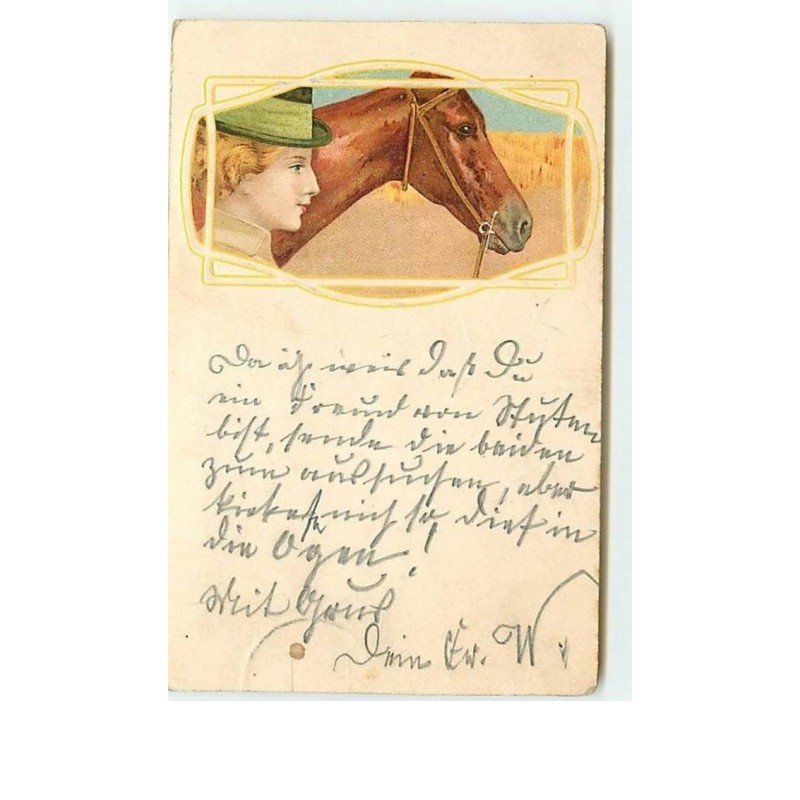 Da ich weis daß Du
ein Freund von Stuten
bist, sende die beiden
zum aussuchen, aber
kieke se nich so dief in
die Ogen!
Mit Grus
Dein Fr. W.